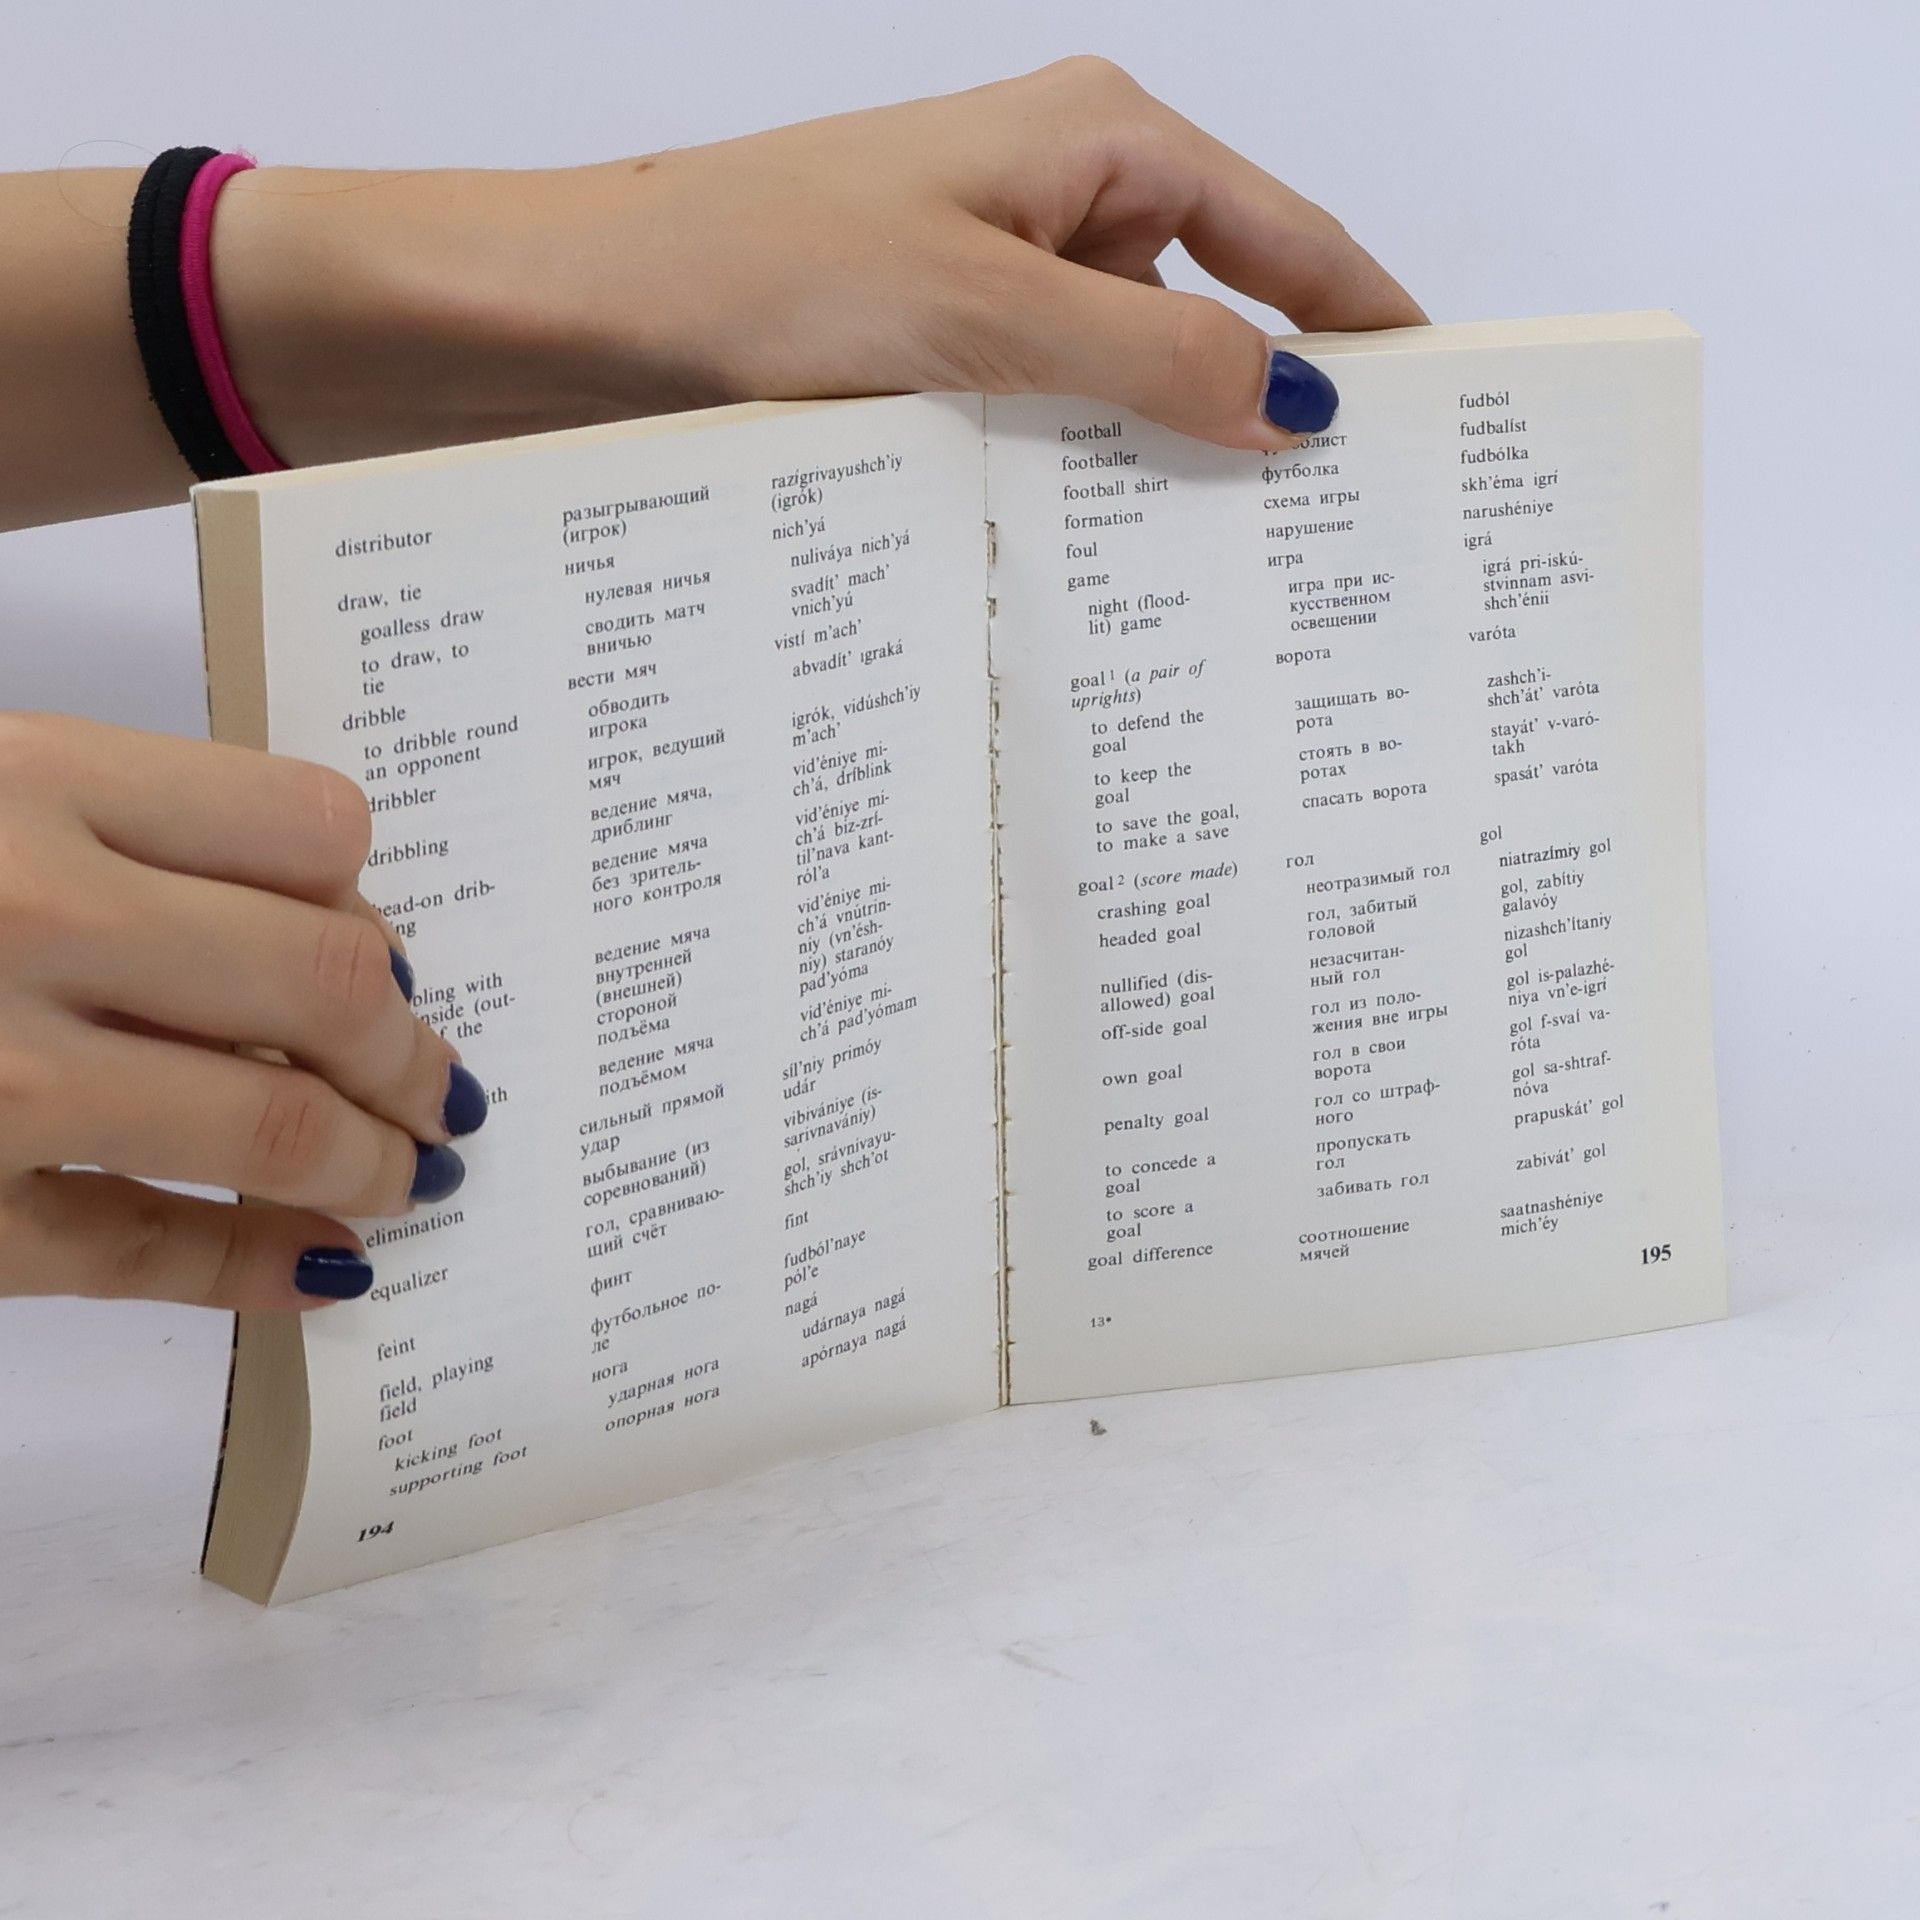 distributor
draw, tie
goalless draw
to draw, to
tie
dribble
to dribble round
an opponent
dribbler
dribbling
head-on drib-
with
elimination
equalizer
feint
field, playing
field
foot
kicking foot
supporting foot
разыгрывающий
(игрок)
ничья
нулевая ничья
сводить матч
вничью
вести мяч
обводить
игрока
игрок, ведущий
мяч
ведение мяча,
дриблинг
ведение мяча
без зритель-
ного контроля
ведение мяча
внутренней
(внешней)
стороной
подъёма
ведение мяча
подъёмом
сильный прямой
удар
выбывание (из
соревнований)
гол, сравниваю-
щий счёт
финт
футбольное по-
ле
нога
ударная нога
опорная нога
razígrivayushch'iy
(igrók)
nich'yá
nuliváya nich'yá
svadít' mach'
vnich'yú
vistí m'ach'
abvadít' igraká
igrók, vidúshch'iy
m'ach'
vid'éniye mi-
ch'á, dríblink
vid'éniye mi-
ch'á biz-zrí-
til'nava kant-
ról'a
vid'éniye mi-
ch'á vnútrin-
niy (vn'ésh-
niy) staranóy
pad'yóma
vid'éniye mi-
ch'á pad'yómam
síl'niy primóy
udár
vibivániye (is-
sarivnavániy)
gol, srávnivayu-
shch'iy shch'ot
fint
fudból'naye
pól'e
nagá
udárnaya nagá
apórnaya nagá
194
football
footballer
football shirt
formation
foul
game
night (flood-
lit) game
goal¹ (a pair of
uprights)
to defend the
goal
to keep the
goal
to save the goal,
to make a save
goal² (score made)
crashing goal
headed goal
nullified (dis-
allowed) goal
off-side goal
own goal
penalty goal
to concede a
goal
to score a
goal
goal difference
футболка
схема игры
нарушение
игра
игра при ис-
кусственном
освещении
ворота
защищать во-
рота
стоять в во-
ротах
спасать ворота
гол
неотразимый гол
гол, забитый
головой
незасчитан-
ный гол
гол из поло-
жения вне игры
гол в свои
ворота
гол со штраф-
ного
пропускать
гол
забивать гол
соотношение
мячей
fudból
fudbalíst
fudbólka
skh'éma igrí
narushéniye
igrá
igrá pri-iskú-
stvinnam asvi-
shch'énii
varóta
zashch'i-
shch'át' varóta
stayát' v-varó-
takh
spasát' varóta
gol
niatrazímiy gol
gol, zabítiy
galavóy
nizashch'ítaniy
gol
gol is-palazhé-
niya vn'e-igrí
gol f-svaí va-
róta
gol sa-shtraf-
nóva
prapuskát' gol
zabivát' gol
saatnashéniye
mich'éy
13*
195